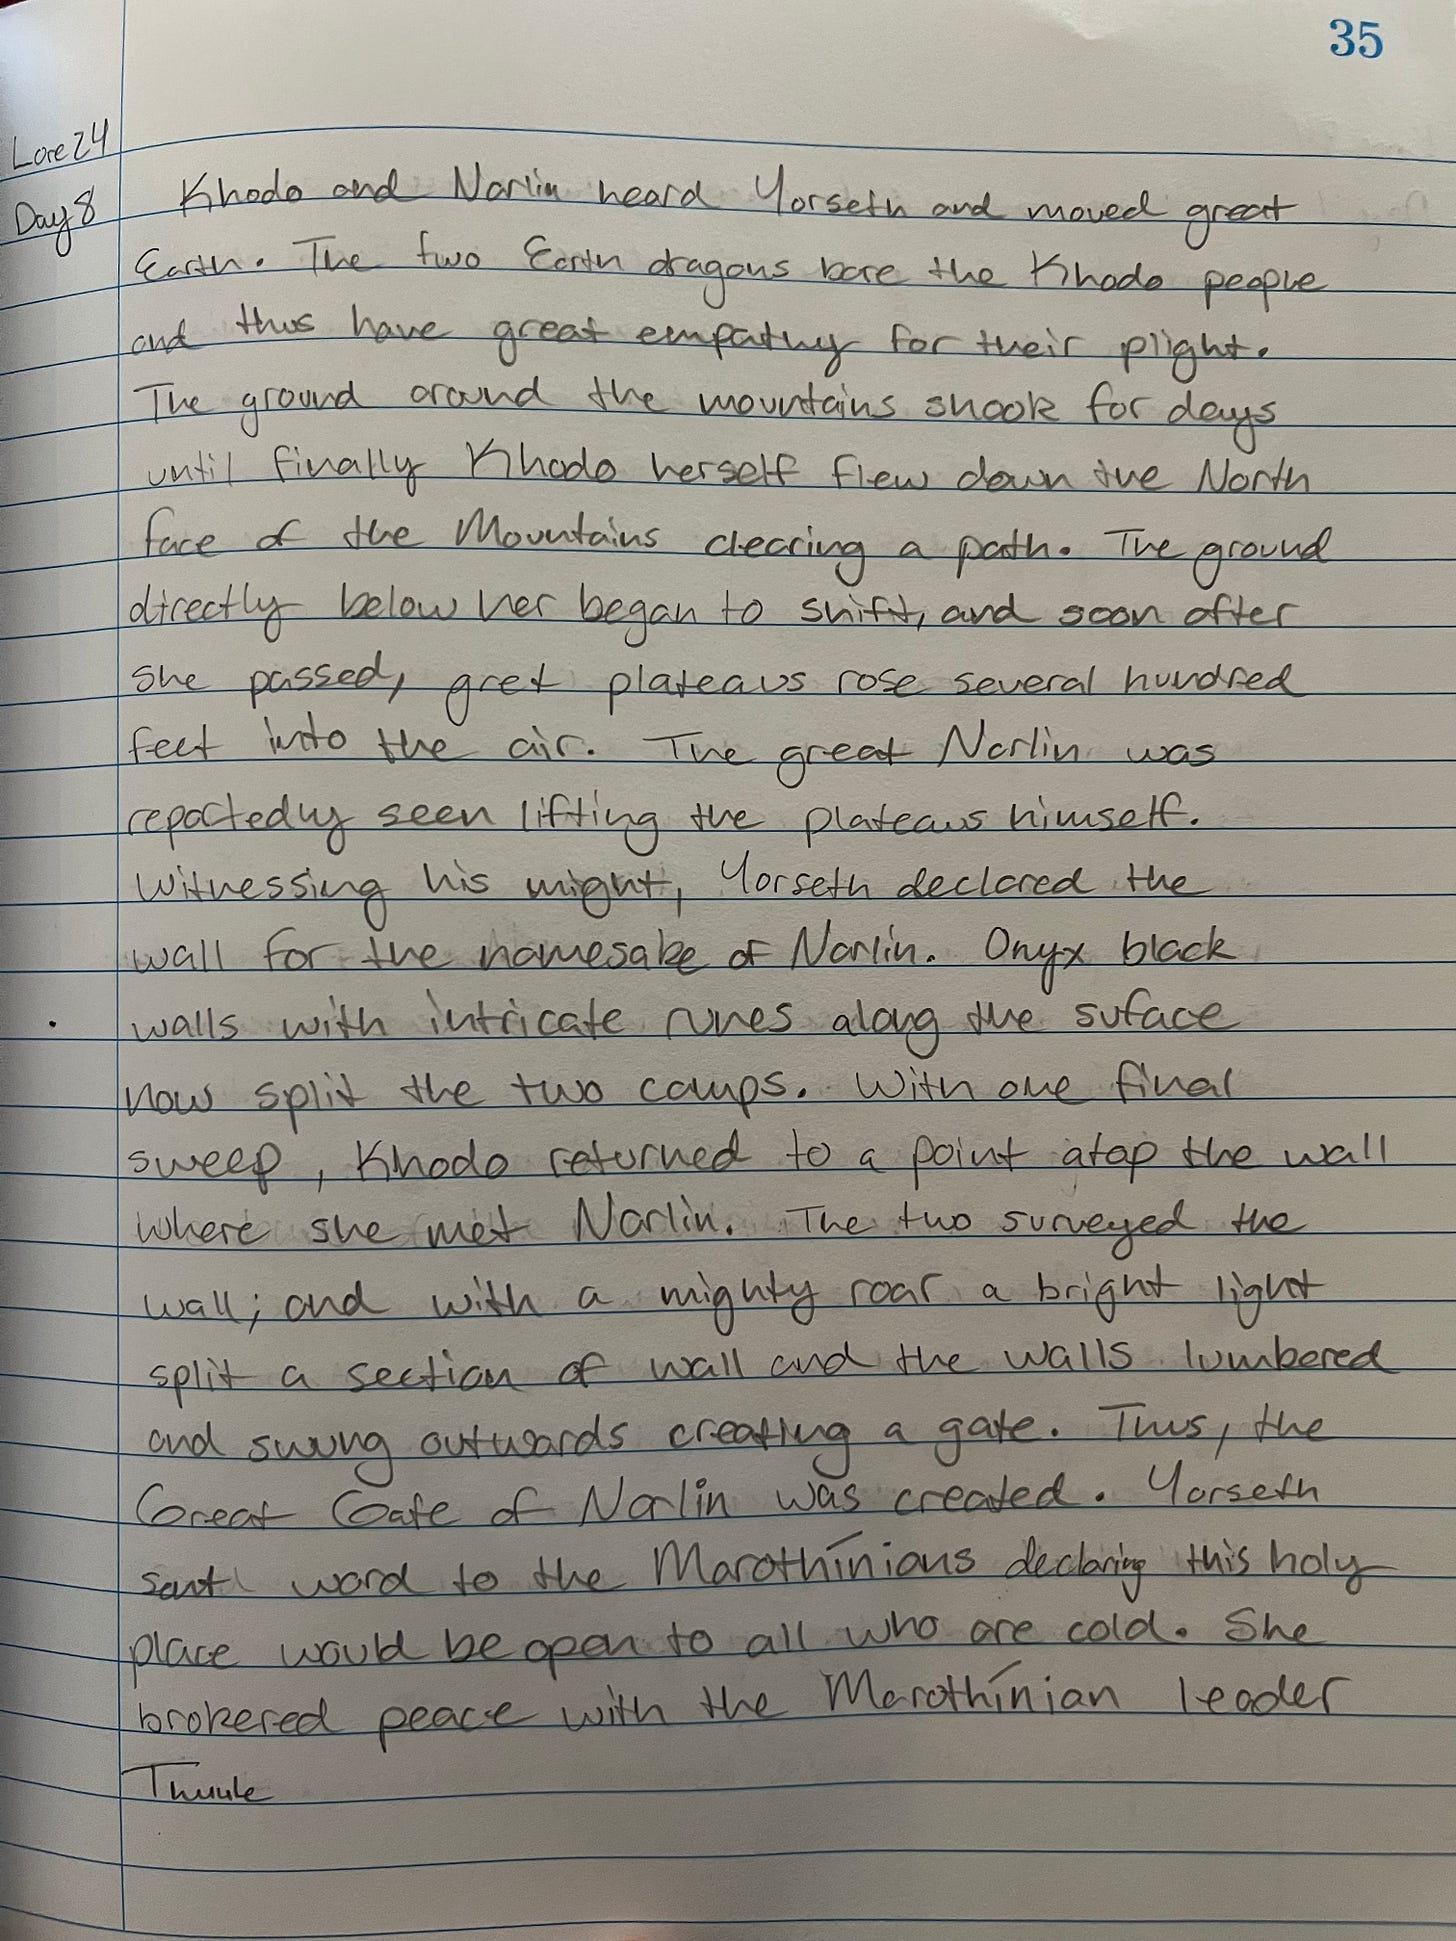 35
Lore24
Day 8
Khodo and Narlin heard Yorseth and moved great
Earth. The two Earth dragons bore the Khodo people
and thus have great empathy for their plight.
The ground around the mountains shook for days
until finally Khodo herself flew down the North
face of the Mountains clearing a path. The ground
directly below her began to shift, and soon after
she passed, gret plateaus rose several hundred
feet into the air. The great Narlin was
reportedly seen lifting the plateaus himself.
Witnessing his might, Yorseth declared the
wall for the namesake of Narlin. Onyx black
walls with intricate runes along the suface
now split the two camps. With one final
sweep, Khodo returned to a point atop the wall
where she met Narlin. The two surveyed the
wall; and with a mighty roar a bright light
split a section of wall and the walls lumbered
and swung outwards creating a gate. Thus, the
Great Gate of Narlin was created. Yorseth
sent word to the Marothínians declaring this holy
place would be open to all who are cold. She
brokered peace with the Marothínian leader